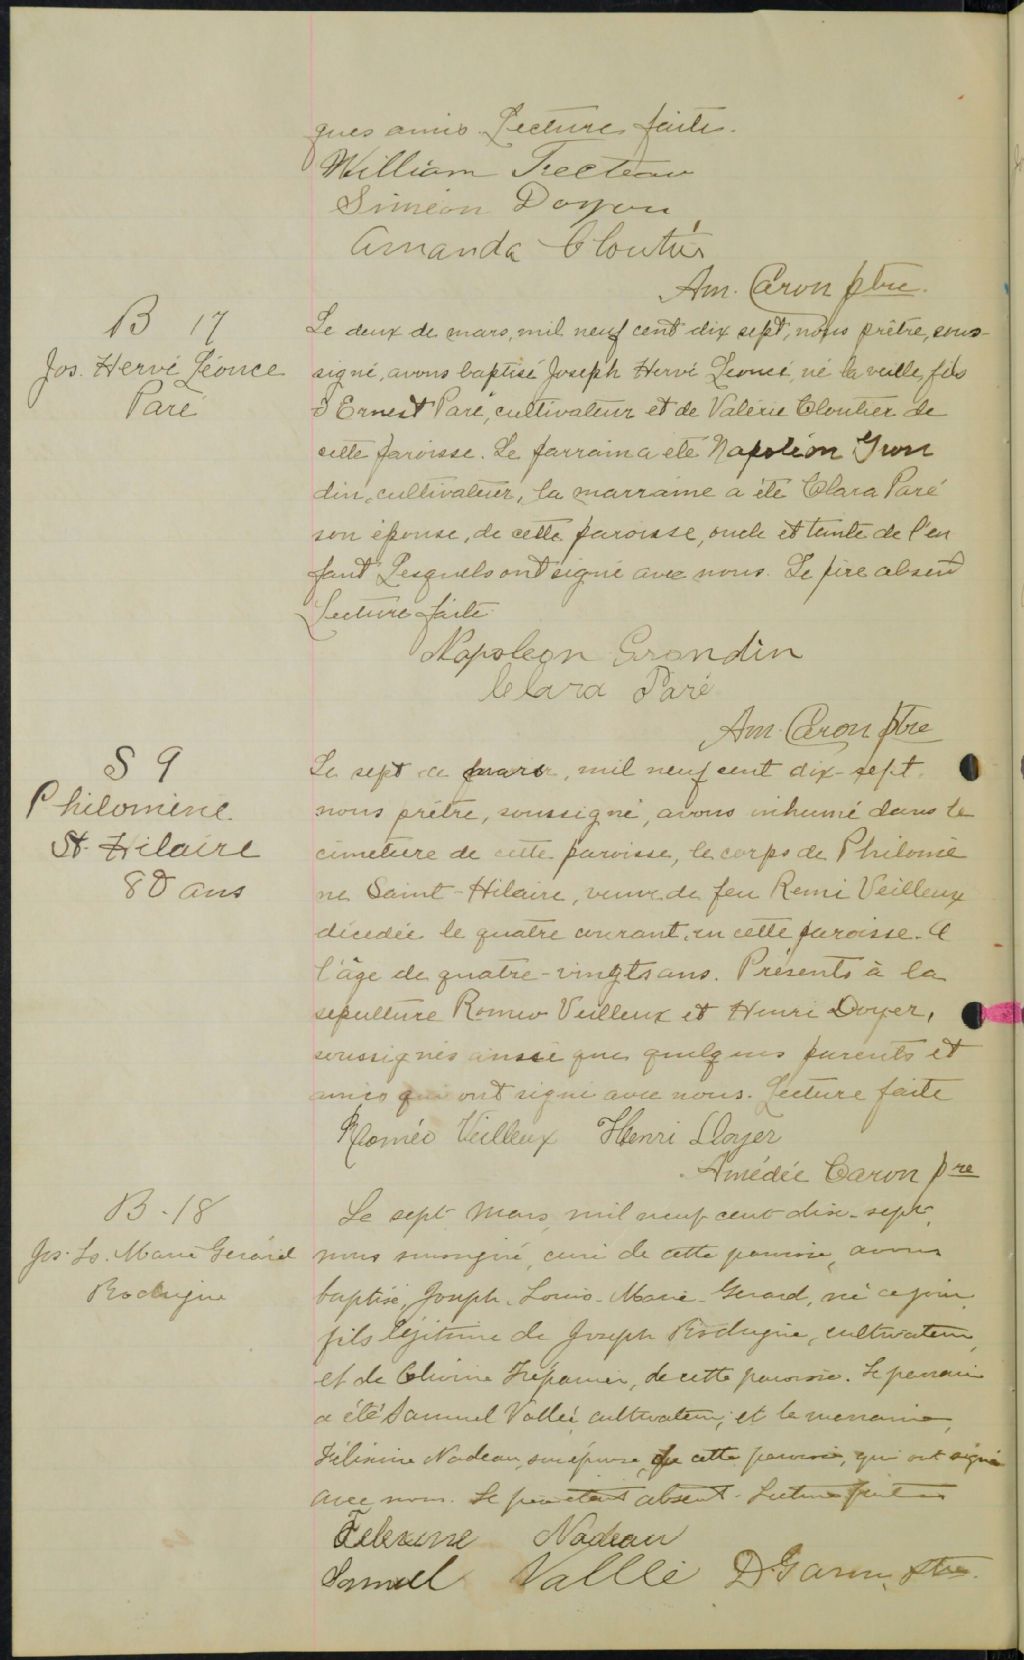 ques amis. Lecture faite.
William Trecteau
Siméon Doyon
Amanda Cloutier
Am. Caron ptre.
B 17
Jos. Hervé Léonce
Paré
Le deux de mars, mil neuf cent dix sept, nous prêtre, sous-
signé, avons baptisé Joseph Hervé Léonce, né la veille, fils
d'Ernest Paré, cultivateur et de Valérie Cloutier de
cette paroisse. Le parrain a été Napoléon Gron
din, cultivateur, la marraine a été Clara Paré
son épouse, de cette paroisse, oncle et tante de l'en
fant Lesquels ont signé avec nous. Le père absent
Lecture faite.
Napoleon Grondin
Clara Paré
Am. Caron ptre
S 9
Philomène
St-Hilaire
80 ans
Le sept de mars, mil neuf cent dix-sept,
nous prêtre, soussigné, avons inhumé dans le
cimetière de cette paroisse, le corps de Philomè
ne Saint-Hilaire, veuve de feu Remi Veilleux
décédée le quatre courant, en cette paroisse. A
l'âge de quatre-vingts ans. Présents à la
sépulture Romeo Veilleux et Henri Doyer,
soussignés ainsi que quelques parents et
amis qui ont signé avec nous. Lecture faite
Roméo Veilleux Henri Doyer
Amédée Caron pre
B-18
Jos. Ls. Marie Gérard
Rodrigue
Le sept Mars, mil neuf cent dix-sept,
nous soussigné, curé de cette paroisse, avons
baptisé, Joseph-Louis-Marie-Gerard, né ce jour,
fils légitime de Joseph Rodrigue, cultivateur,
et de Trépanier, de cette paroisse. Le parrain
a été Samuel Vallée, cultivateur, et la marraine,
Nadeau, son épouse, de cette paroisse, qui ont signé
avec nous. Le père était absent. Lecture faite
Nadeau
Samuel Vallée ptre.